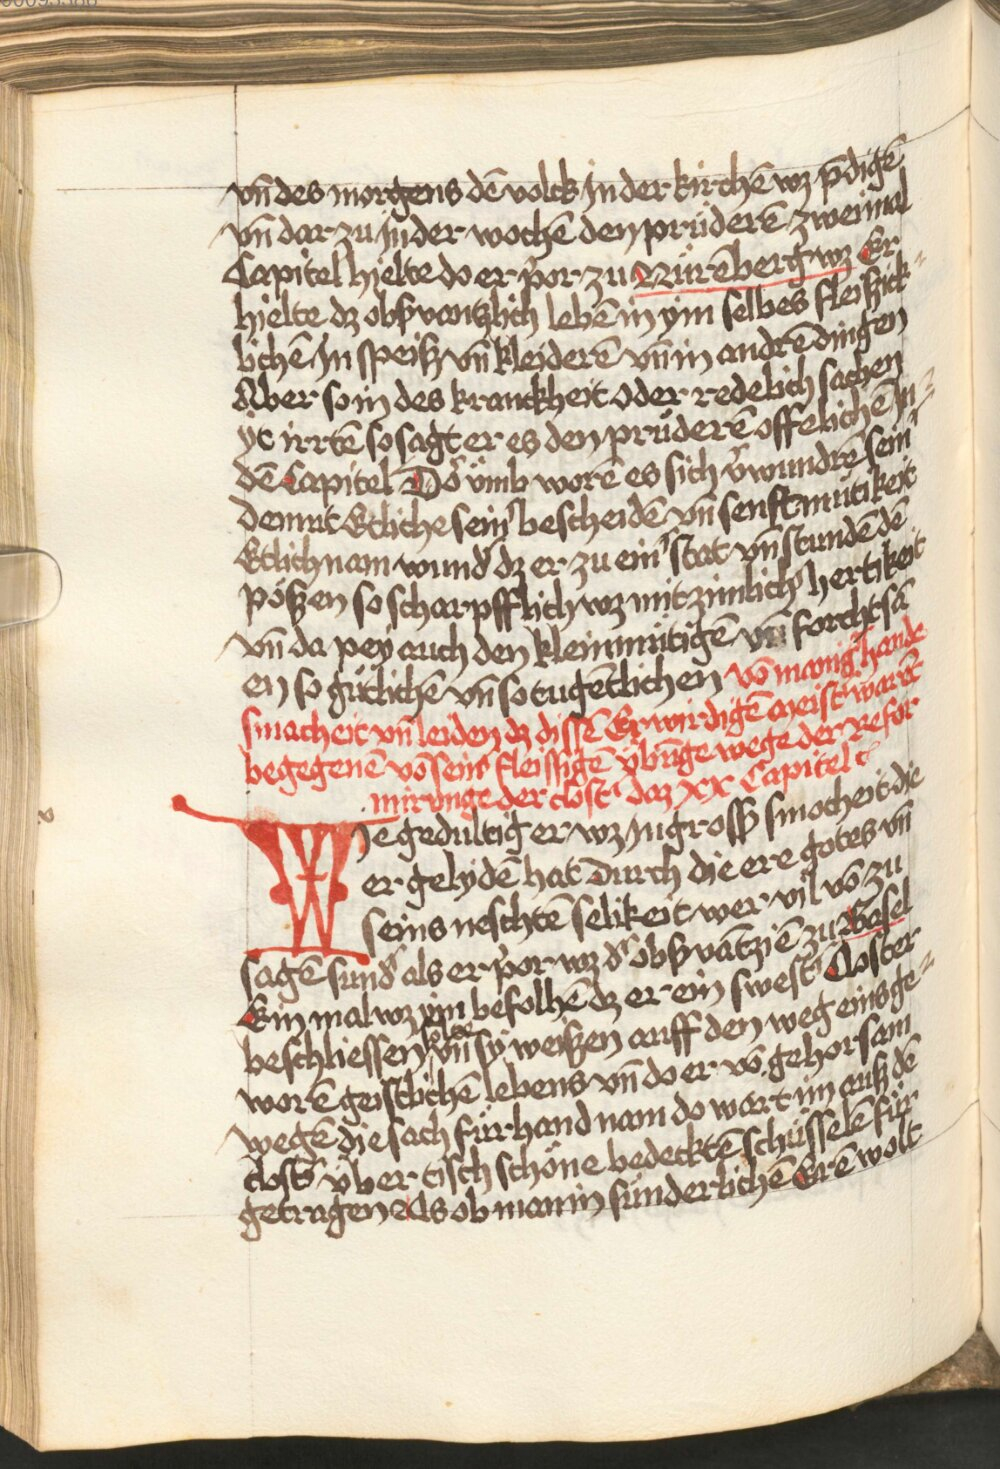 vn̄ des morgens dē volck jn der kirchē wz p̄digē
vn̄ dar zu jn der wochē den prüderē zweimal
Capitel hielte do er vor zu Nürēberg wz Er
hielte dz obſ̱vantzlich lebē in ym selbes fleiſick
lichē jn speiß vn̄ kleiderē vn̄ in andrē dingen
Aber so in des kranckheit oder redelich sachen
yt irrtē so sagt er es den prüderē offelichē jn
dē Capitel Do vmb worē es sich v̓wundrē sein
demut Etliche sein̓ bescheidē vn̄ senftmütikeit
Etlich nam wund̓ dz er zu ein̓ stat vn̄ stundē dē
pößen so scharpfflich wz mit zimlich̓ hertikeit
vn̄ da pey auch den kleinmütigē vn̄ forchtsā
en so gütlichē vn̄ so tugētlichen vō manig̓ hande
smacheit vn̄ leiden dz dissē Erwirdigē meist̓ warēt
begegenē vō sein̓ fleissigē v̓būge wege der Refor
mirunge der clost̓ daz XX Capitel c̄
Wie gedultig er wz jn gross smocheit die
er gelydē hat durch die ere gotes vn̄
seins neschtē selikeit wer vil vō zu
sagē sund̓ als er vor wz d̓ obſ̱vātziē zu Basel
Ein mal wz ym befolhē dz er ein swest̓ Closter
beschliessen solte vn̄ sy weißen auff den weg eins ge
worē geistlichē lebens vn̄ do er vō gehorsam
wegē die sach für hand nam do wart im auß dē
clost̓ v̈ber tisch schöne bedecktē schüsselē für
getragen Als ob man in sünderlichē Erē wolt